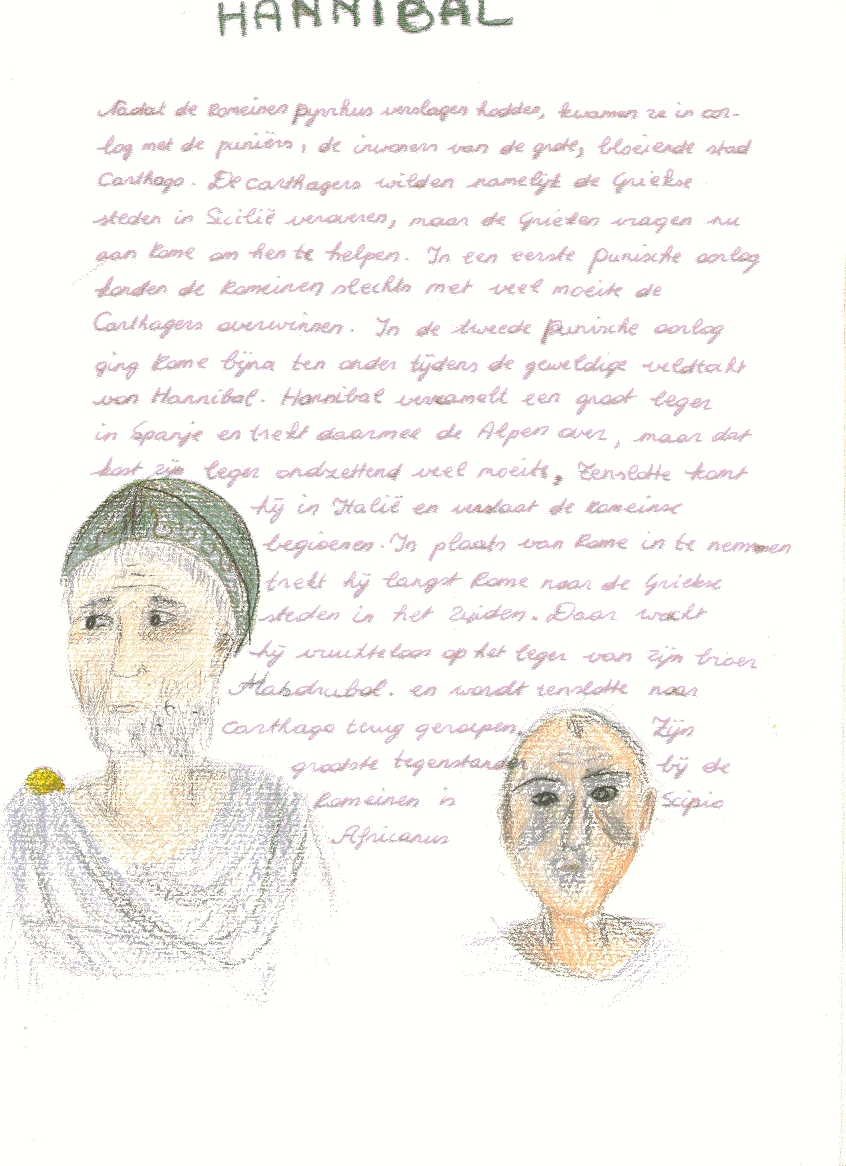 HANNIBAL
Nadat de Romeinen Pyrrhus verslagen hadden, kwamen ze in oor-
log met de puniërs, de inwoners van de grote, bloeiende stad
Carthago. De carthagers wilden namelijk de Griekse
steden in Sicilië veroveren, maar de Grieken vragen nu
aan Rome om hen te helpen. In een eerste punische oorlog
konden de Romeinen slechts met veel moeite de
Carthagers overwinnen. In de tweede punische oorlog
ging Rome bijna ten onder tijdens de geweldige veldtocht
van Hannibal. Hannibal verzamelt een groot leger
in Spanje en trekt daarmee de Alpen over, maar dat
kost zijn leger ontzettend veel moeite. Tenslotte komt
hij in Italië en verslaat de Romeinse
legioenen. In plaats van Rome in te nemmen
trekt hij langst Rome naar de Griekse
steden in het Zuiden. Daar wacht
hij vruchteloos op het leger van zijn broer
Hasdrubal. en wordt tenslotte naar
Carthago terug geroepen. Zijn
grootste tegenstander bij de
Romeinen is Scipio
Africanus